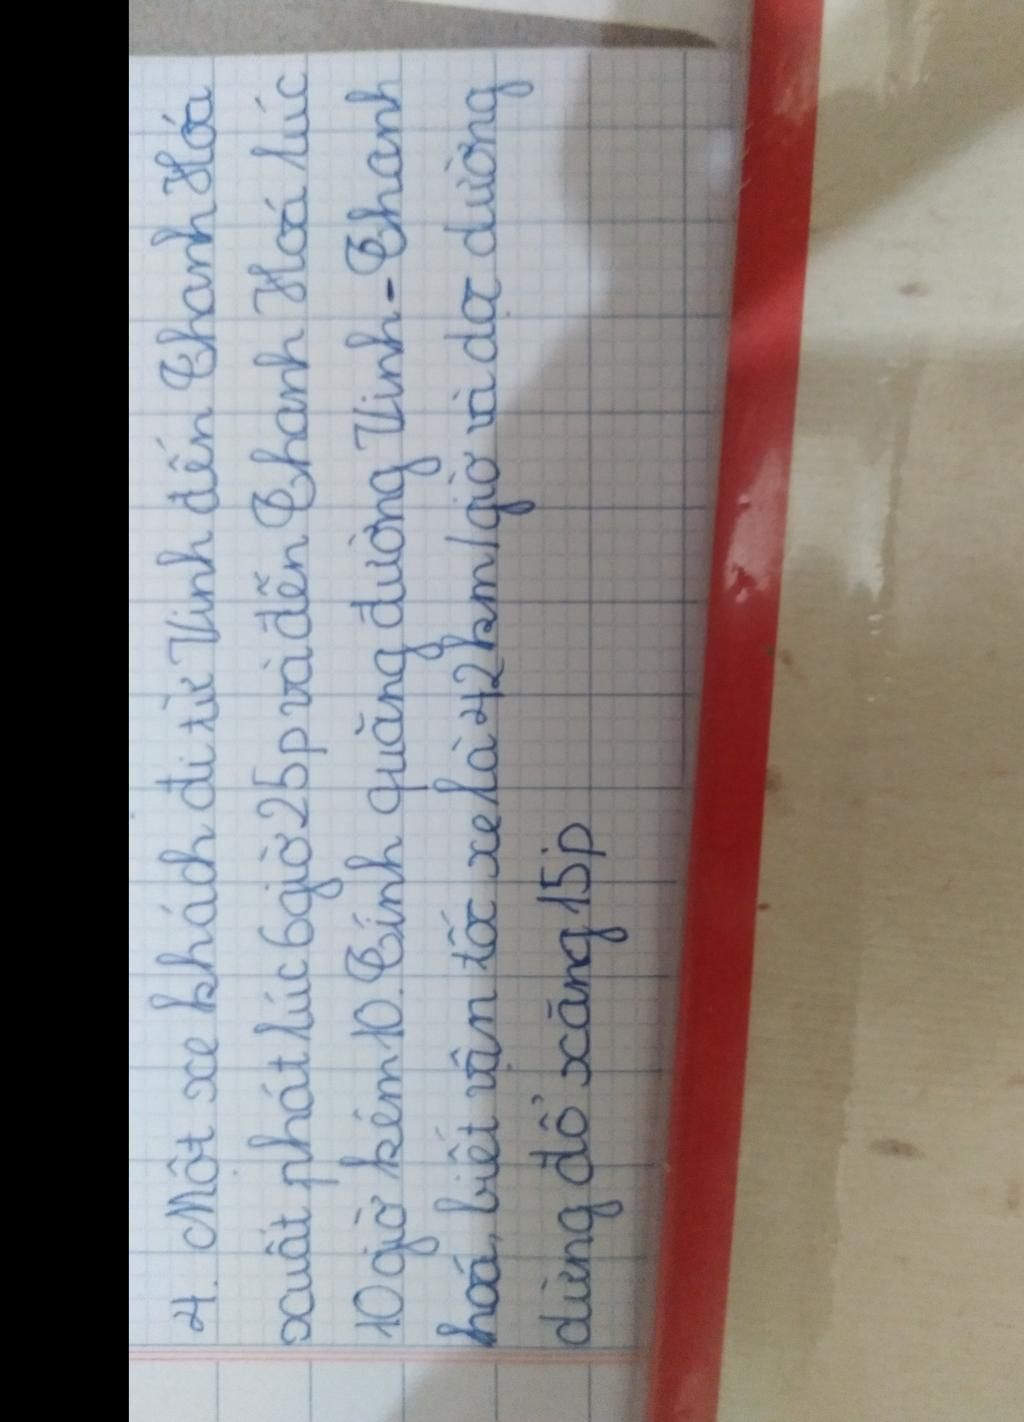 4. Một xe khách đi từ Vinh đến Thanh Hóa
xuất phát lúc 6giờ 25p và đến Thanh Hoá lúc
10 giờ kém 10. Tính quãng đường Vinh-Thanh
hoá, biết vận tốc xe là 42km/giờ và dọc đường
dừng đổ xăng 15p